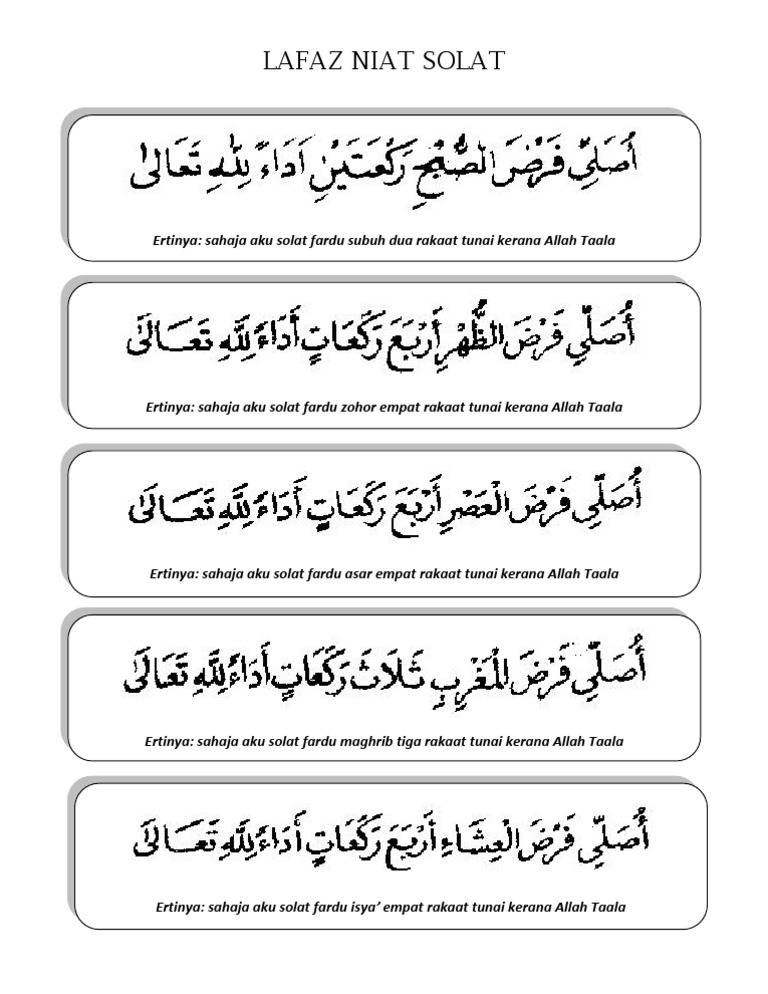 LAFAZ NIAT SOLAT
أُصَلِّي فَرْضَ الصُّبْحِ رَكْعَتَيْنِ اَدَاءً لِلّٰهِ تَعَالىٰ
Ertinya: sahaja aku solat fardu subuh dua rakaat tunai kerana Allah Taala
أُصَلِّي فَرْضَ الظُّهْرِ أَرْبَعَ رَكَعَاتٍ أَدَاءً لِلَّهِ تَعَالَىٰ
Ertinya: sahaja aku solat fardu zohor empat rakaat tunai kerana Allah Taala
أُصَلِّي فَرْضَ الْعَصْرِ أَرْبَعَ رَكَعَاتٍ أَدَاءً لِلَّهِ تَعَالَىٰ
Ertinya: sahaja aku solat fardu asar empat rakaat tunai kerana Allah Taala
أُصَلِّي فَرْضَ الْمَغْرِبِ ثَلَاثَ رَكَعَاتٍ أَدَاءً لِلَّهِ تَعَالَىٰ
Ertinya: sahaja aku solat fardu maghrib tiga rakaat tunai kerana Allah Taala
أُصَلِّي فَرْضَ الْعِشَاءِ أَرْبَعَ رَكَعَاتٍ أَدَاءً لِلَّهِ تَعَالَىٰ
Ertinya: sahaja aku solat fardu isya’ empat rakaat tunai kerana Allah Taala